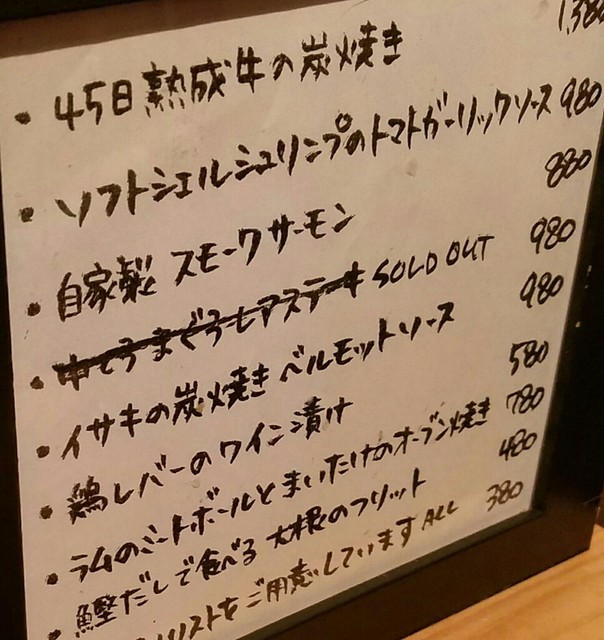 ・45日熟成牛の炭焼き 1,380
・ソフトシェルシュリンプのトマトガーリックソース 980
・自家製 スモークサーモン 880
・中とろまぐろレアステーキ SOLD OUT 980
・イサキの炭焼き ベルモットソース 980
・鶏レバーのワイン漬け 580
・ラムのミートボールとまいたけのオーブン焼き 780
・鰹だしで食べる 大根のフリット 480
リストをご用意しています ALL 380